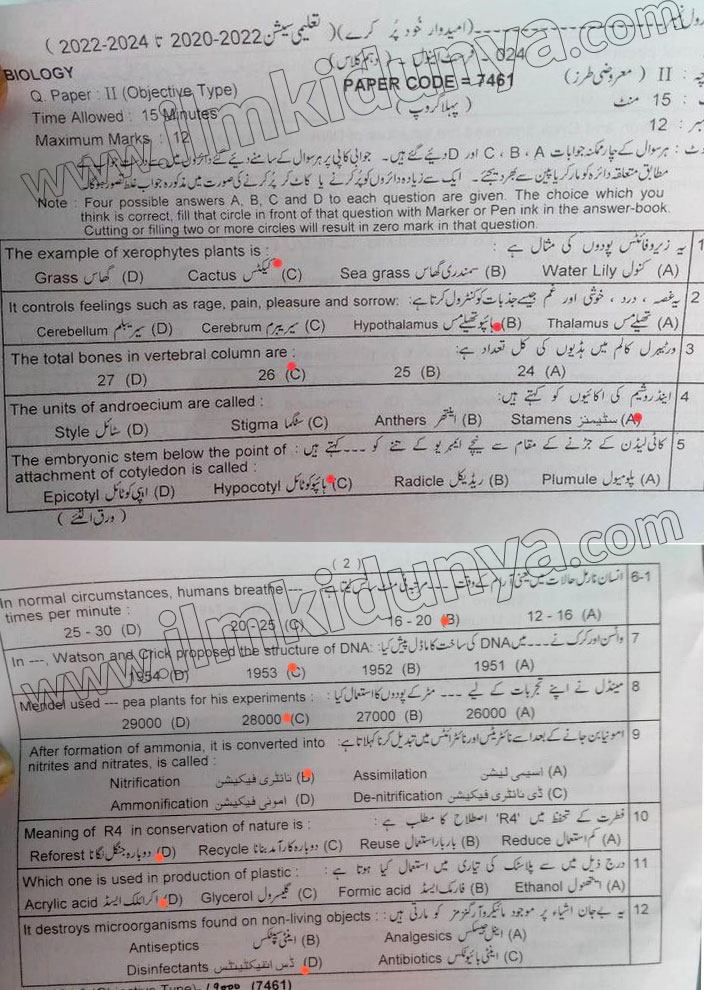 رول نمبر ---------- (امیدوار خود پُر کرے) ( تعلیمی سیشن 2022-2020 تا 2024-2022 )
BIOLOGY 024 - (دہم کلاس)
Q. Paper : II (Objective Type) PAPER CODE = 7461 II ( معروضی طرز )
Time Allowed : 15 Minutes ( پہلا گروپ ) 15 منٹ
Maximum Marks : 12 12
ہر سوال کے چار ممکنہ جوابات A ، B ، C اور D دیئے گئے ہیں۔ جوابی کاپی پر ہر سوال کے سامنے دیئے گئے دائروں میں سے درست جواب کے
مطابق متعلقہ دائرہ کو مارکر یا پین سے بھر دیجئے۔ ایک سے زیادہ دائروں کو پُر کرنے یا کاٹ کر پُر کرنے کی صورت میں مذکورہ جواب غلط تصور ہوگا۔
Note : Four possible answers A, B, C and D to each question are given. The choice which you
think is correct, fill that circle in front of that question with Marker or Pen ink in the answer-book.
Cutting or filling two or more circles will result in zero mark in that question.
The example of xerophytes plants is : یہ زیروفائٹس پودوں کی مثال ہے : 1
Grass گھاس (D) Cactus کیکٹس (C) Sea grass سمندری گھاس (B) Water Lily کنول (A)
It controls feelings such as rage, pain, pleasure and sorrow: یہ غصہ ، درد ، خوشی اور غم جیسے جذبات کو کنٹرول کرتا ہے: 2
Cerebellum سیریبلم (D) Cerebrum سیریبرم (C) Hypothalamus ہائپوتھیلمس (B) Thalamus تھیلمس (A)
The total bones in vertebral column are : ورٹیبرل کالم میں ہڈیوں کی کل تعداد ہے: 3
27 (D) 26 (C) 25 (B) 24 (A)
The units of androecium are called : اینڈروشیم کی اکائیوں کو کہتے ہیں: 4
Style سٹائل (D) Stigma سٹگما (C) Anthers اینتھر (B) Stamens سٹیمنز (A)
The embryonic stem below the point of کاٹی لیڈن کے جڑنے کے مقام سے نیچے ایمبریو کے تنے کو --- کہتے ہیں : 5
attachment of cotyledon is called :
Epicotyl ایپی کوٹائل (D) Hypocotyl ہائپوکوٹائل (C) Radicle ریڈیکل (B) Plumule پلومیول (A)
( ورق الٹئے )
( 2 )
In normal circumstances, humans breathe --- انسان نارمل حالات میں یعنی آرام کے وقت --- مرتبہ فی منٹ سانس لیتا ہے 6-1
times per minute :
25 - 30 (D) 20 - 25 (C) 16 - 20 (B) 12 - 16 (A)
In ---, Watson and Crick proposed the structure of DNA: واٹسن اور کرک نے --- میں DNA کی ساخت کا ماڈل پیش کیا: 7
1954 (D) 1953 (C) 1952 (B) 1951 (A)
Mendel used --- pea plants for his experiments : مینڈل نے اپنے تجربات کے لیے --- مٹر کے پودوں کا استعمال کیا: 8
29000 (D) 28000 (C) 27000 (B) 26000 (A)
After formation of ammonia, it is converted into امونیا بن جانے کے بعد اسے نائٹریٹس اور نائٹرائٹس میں تبدیل کرنا کہلاتا ہے: 9
nitrites and nitrates, is called :
Nitrification نائٹری فیکیشن (B) Assimilation اسیمی لیشن (A)
Ammonification امونی فیکیشن (D) De-nitrification ڈی نائٹری فیکیشن (C)
Meaning of R4 in conservation of nature is : فطرت کے تحفظ میں 'R4' اصطلاح کا مطلب ہے : 10
Reforest دوبارہ جنگل لگانا (D) Recycle دوبارہ کارآمد بنانا (C) Reuse بار بار استعمال (B) Reduce کم استعمال (A)
Which one is used in production of plastic : درج ذیل میں سے پلاسٹک کی تیاری میں استعمال کیا ہوتا ہے : 11
Acrylic acid اکرائلک ایسڈ (D) Glycerol گلیسرول (C) Formic acid فارمک ایسڈ (B) Ethanol ایتھنول (A)
It destroys microorganisms found on non-living objects : یہ بے جان اشیاء پر موجود مائیکروآرگنزمز کو مارتی ہیں: 12
Antiseptics اینٹی سپٹکس (B) Analgesics اینل جیسکس (A)
Disinfectants ڈس انفیکٹینٹس (D) Antibiotics اینٹی بائیوٹکس (C)
(7461)
www.ilmkidunya.com
www.ilmkidunya.com